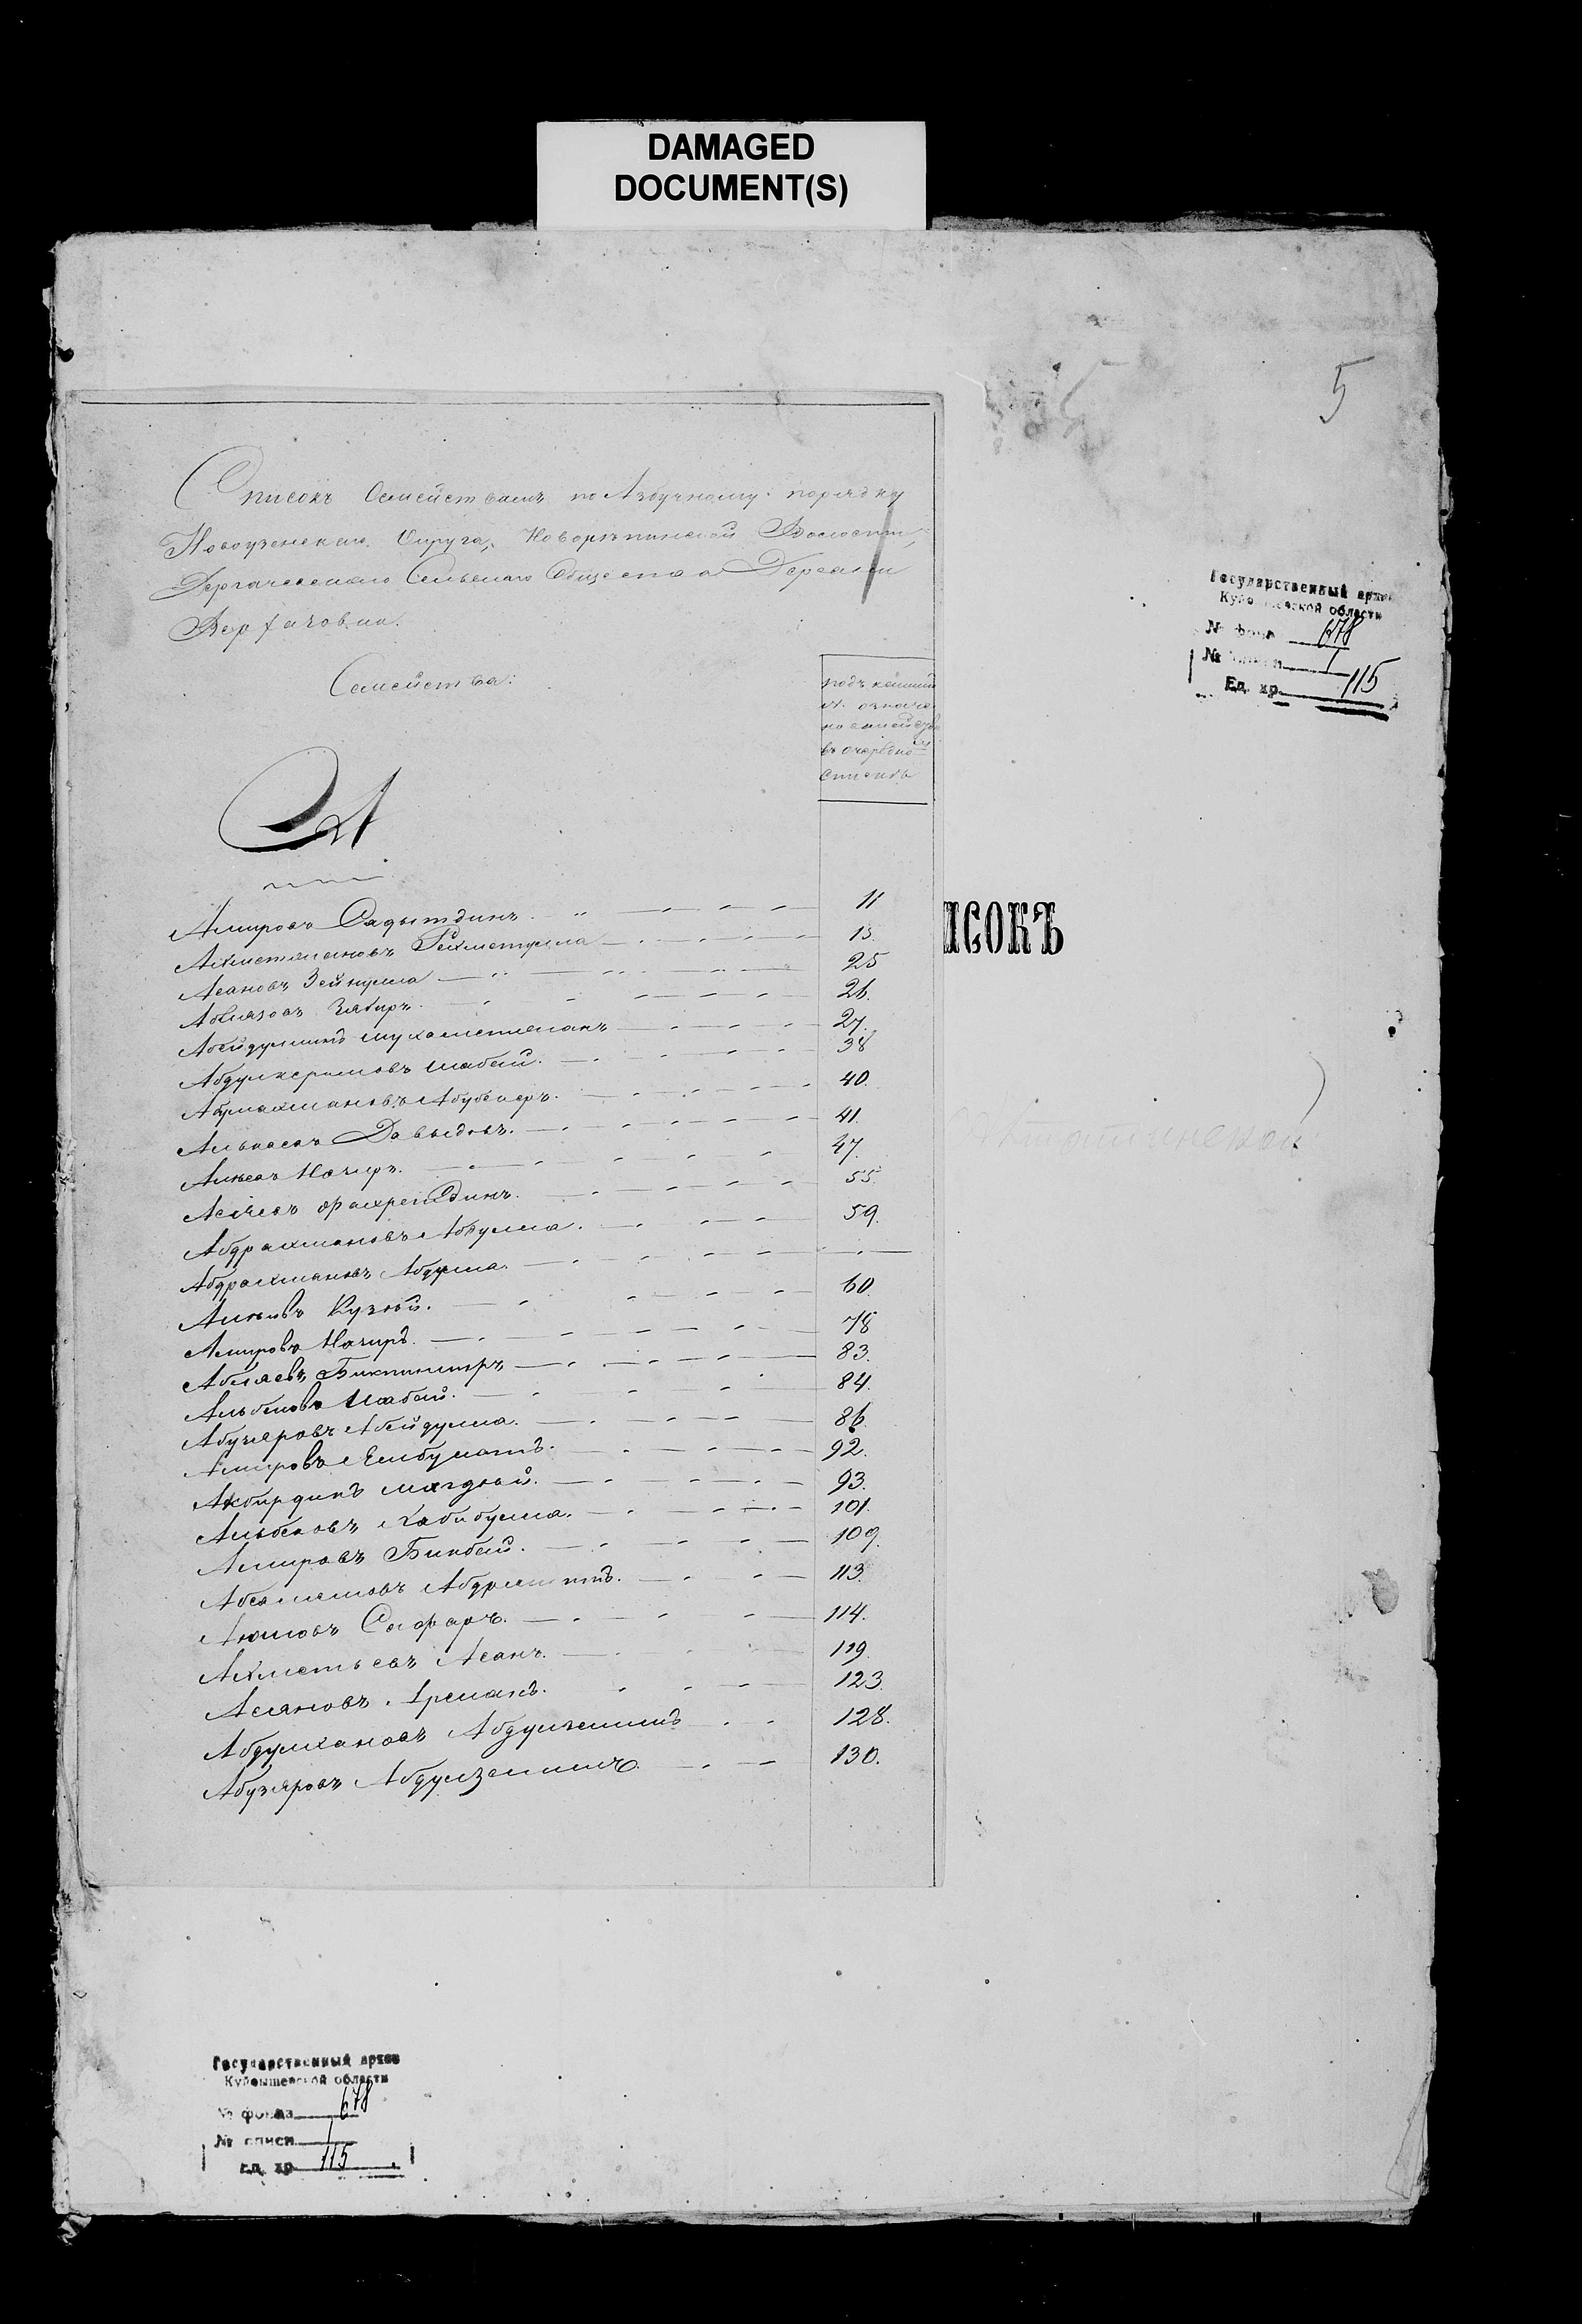 DAMAGED
DOCUMENT(S)
5
Списокъ Семействамъ по Азбучному порядку
Новоузенскаго Округа, Новорѣпинской Волости,
Дергачевскаго Сельскаго Общества Деревни
Верхазовки.
Семейства:
подъ какимъ
№ означе-
но семейство
въ очередно
спискѣ
А
Амировъ Садытдинъ 11
Ахметжановъ Рахметулла 13.
Асановъ Зейнулла 25
Аблязовъ Забиръ 26.
Абейдуллинъ Мухаметжанъ 27.
Абдулкеримовъ Мабей. 38
Абдрахмановъ Абубекеръ. 40.
Алькаевъ Давыдовъ. 41.
Аикаевъ Начиръ. 47.
Асѣевъ Фахретдинъ. 55.
Абдрахмановъ Абдулла. 59.
Абдрахмановъ Абдулла.
Аикеевъ Кузьей. 60.
Амировъ Начиръ. 78
Абляевъ Биктимиръ 83.
Альбековъ Мабей. 84.
Абузяровъ Абейдулла. 86
Амировъ Ембулатъ. 92.
Акбирдинъ 93.
Альбековъ Хабибулла. 101.
Амировъ Бикбай. 109.
Абсалямовъ 113.
Аюповъ Сафаръ. 114.
Ахметьевъ Асанъ. 119.
Асяновъ 123.
Абдулхановъ Абдулзелилъ 128.
Абузяровъ Абдулзелилъ 130.
ИСОКЪ
Государственный архив
Куйбышевской области
№ фонда 678
№ описи 1
Ед. хр. 115
Государственный архив
Куйбышевской области
№ фонда 678
№ описи 1
Ед. хр. 115